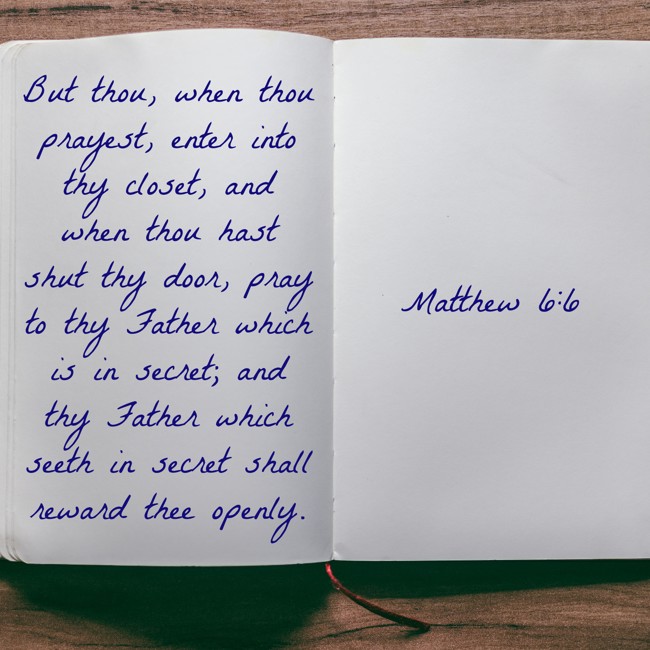 But thou, when thou
prayest, enter into
thy closet, and
when thou hast
shut thy door, pray
to thy Father which
is in secret; and
thy Father which
seeth in secret shall
reward thee openly.
Matthew 6:6